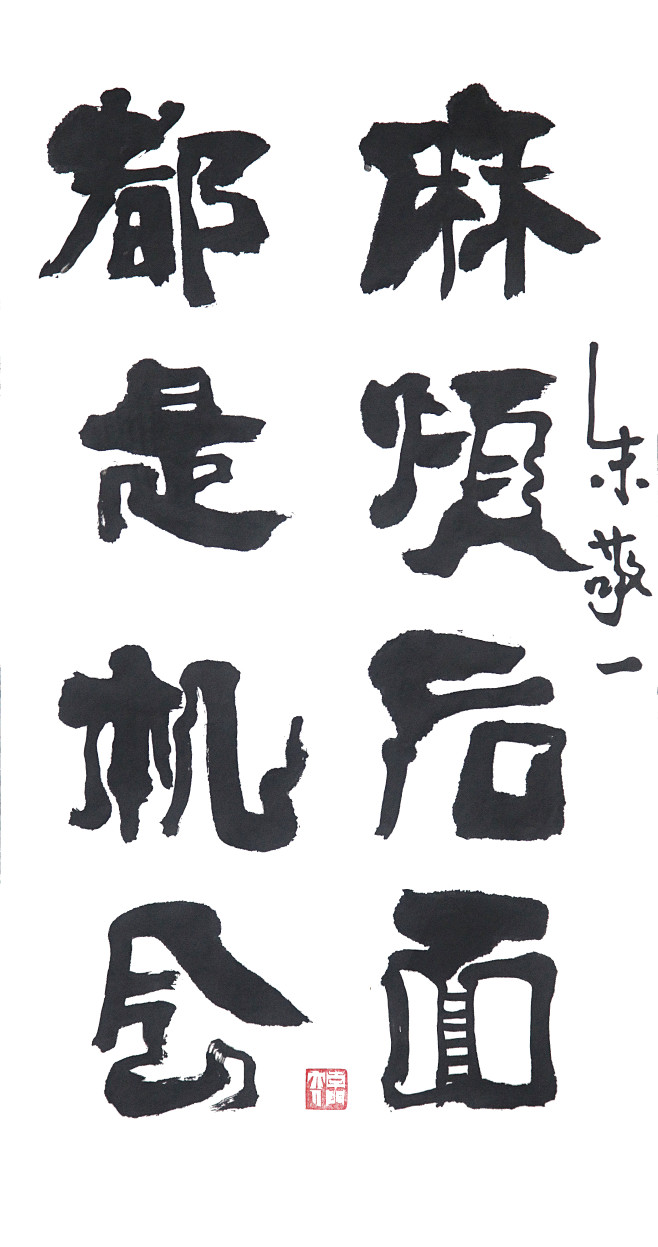 麻煩后面
都是机会
朱敬一